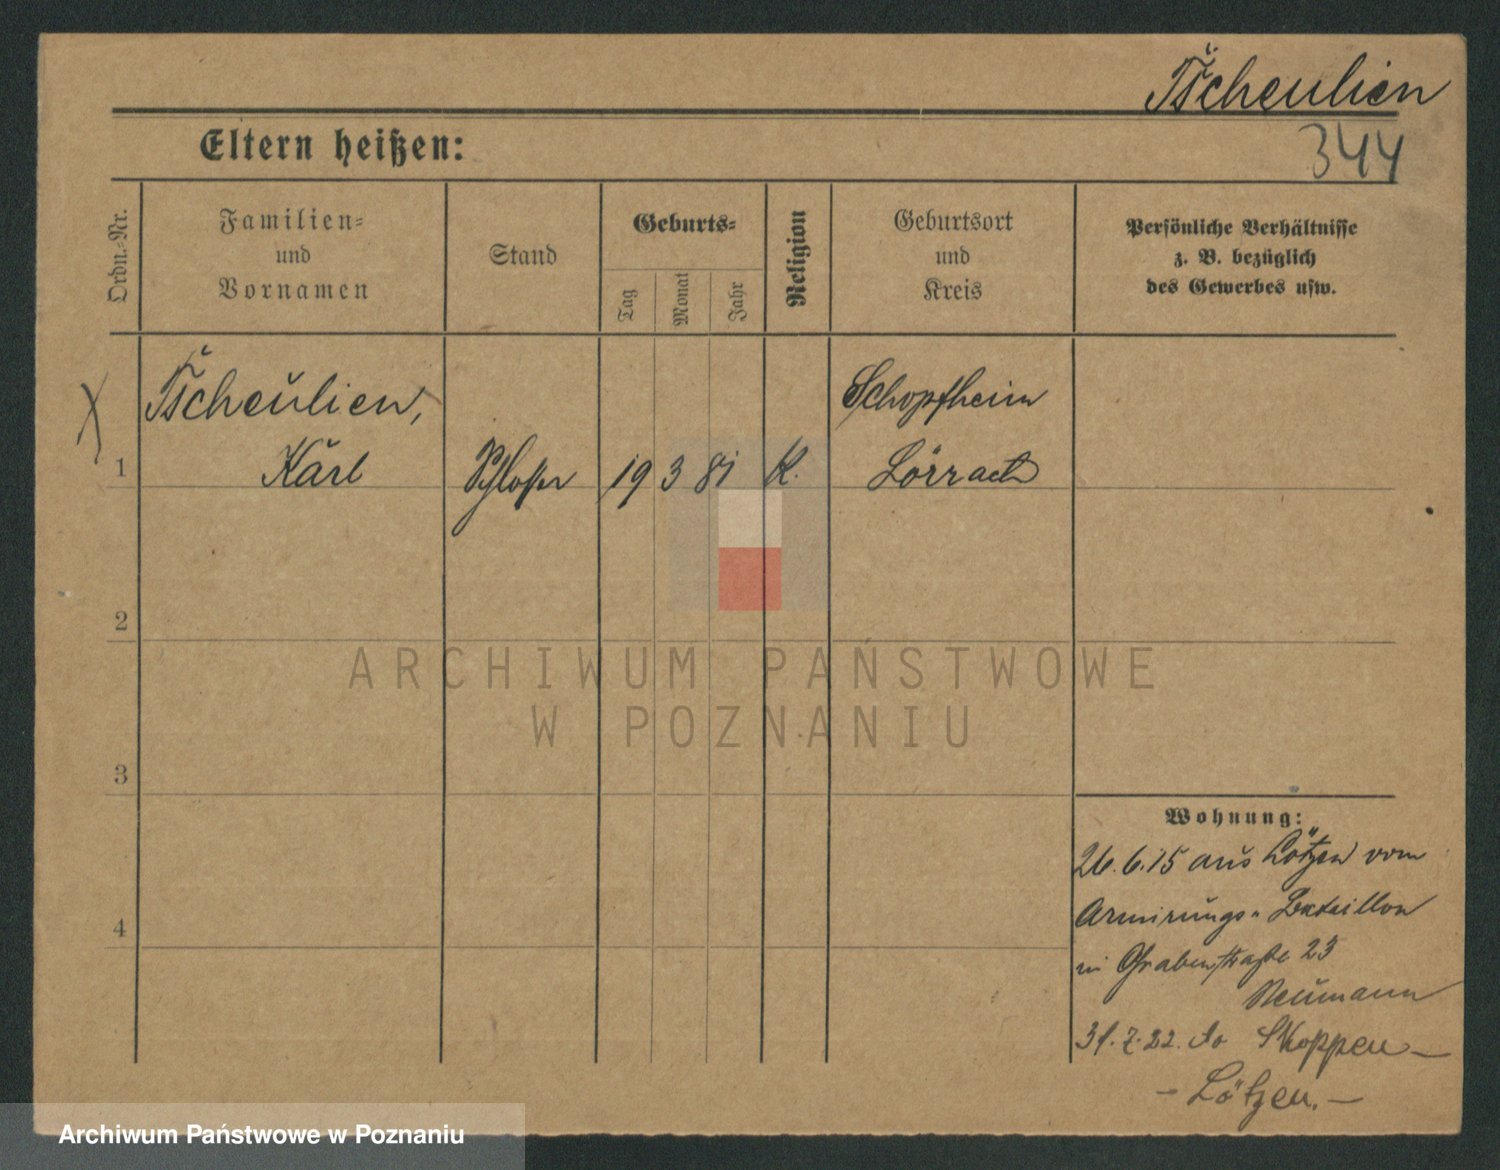 Tscheulien
344
Eltern heißen:
Ordn.-Nr.
Familien-
und
Vornamen
Stand
Geburts-
Tag
Monat
Jahr
Religion
Geburtsort
und
Kreis
Persönliche Verhältnisse
z. B. bezüglich
des Gewerbes usw.
Tscheulien,
Schopfheim
1 Karl Schlosser 19 3 81 K. Lörrach
2
3
4
Wohnung:
26.6.15 aus Lötzen vom
Armirungs-Bataillon
in Grabenstraße 23
Neumann
31.7.22. Skoppen-
- Lötzen. -
ARCHIWUM PAŃSTWOWE
W POZNANIU
Archiwum Państwowe w Poznaniu